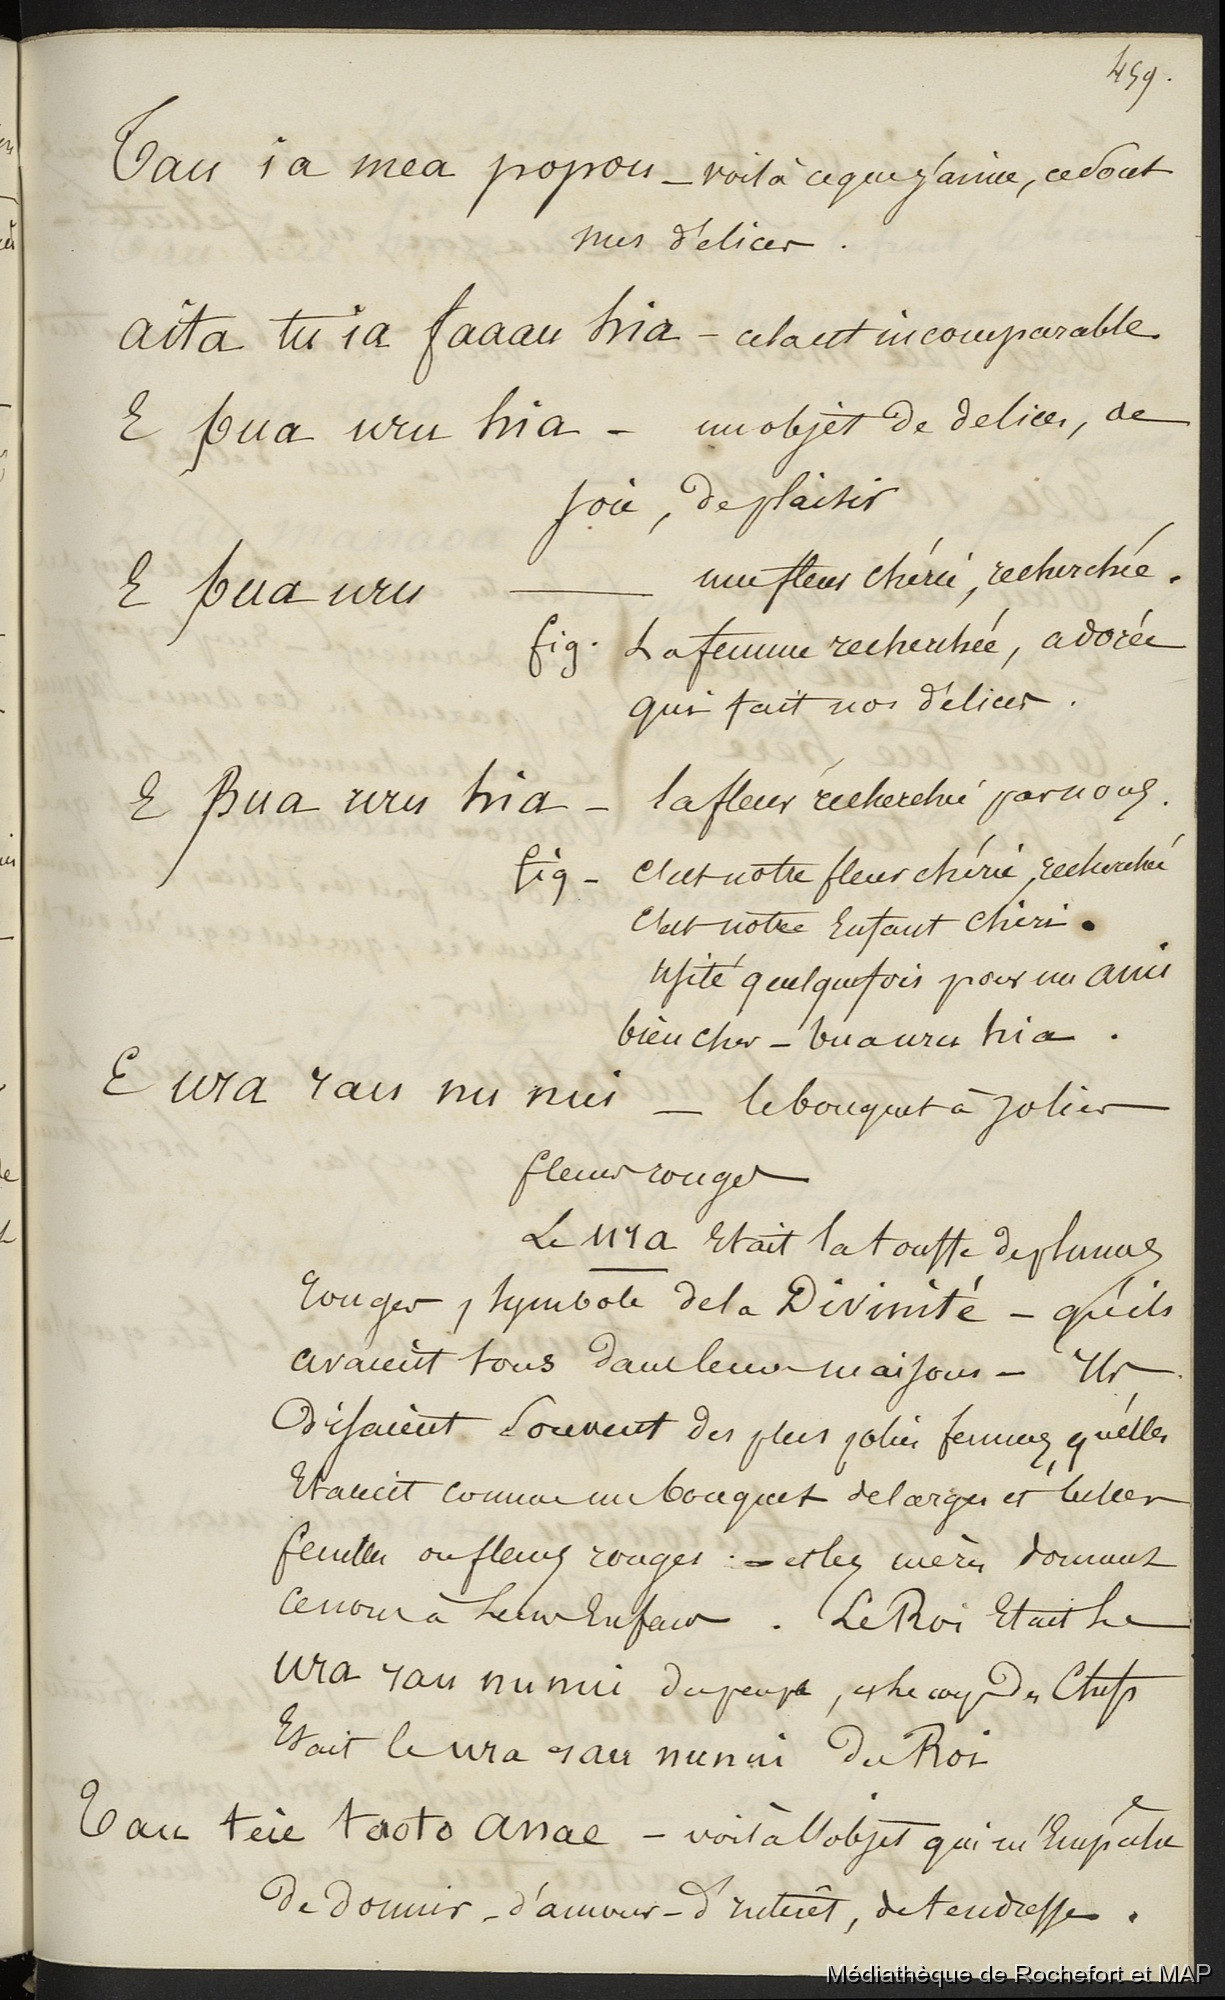 459.
Tau ia mea popou – voilà ce que j'aime, ce dont
mes délices.
aita tu ia faaau hia – cela est incomparable
E pua uru hia – un objet de delices, de
joie, de plaisir
E pua uru — une fleur chérie, recherchée.
fig. La femme recherchée, adorée
qui fait nos délices.
E Bua uru hia – la fleur recherché par nous.
fig – C'est notre fleur chérie, recherché
C'est notre Enfant chéri.
Usité quelquefois pour un ami
bien cher – bua uru hia.
E ura rau nu nui – le bouquet à jolies
fleurs rouges
Le ura Etait la touffe de plumes
rouges, symbole de la Divinité – qu'ils
avaient tous dans leurs maisons – Ils
disaient souvent des plus jolies femmes, qu'elles
Etaient comme un bouquet de larges et belles
feuilles ou fleurs rouges. – et les mères donnent
ce nom à leurs Enfans. Le Roi Etait le
ura rau nu nui du peuple, et le corps des Chefs
Etait le ura rau nu nui du Roi
Tau teie taoto anae – voilà l'objet qui m'Empêche
de dormir – d'amour – d'interêt, de tendresse.
Médiathèque de Rochefort et MAP